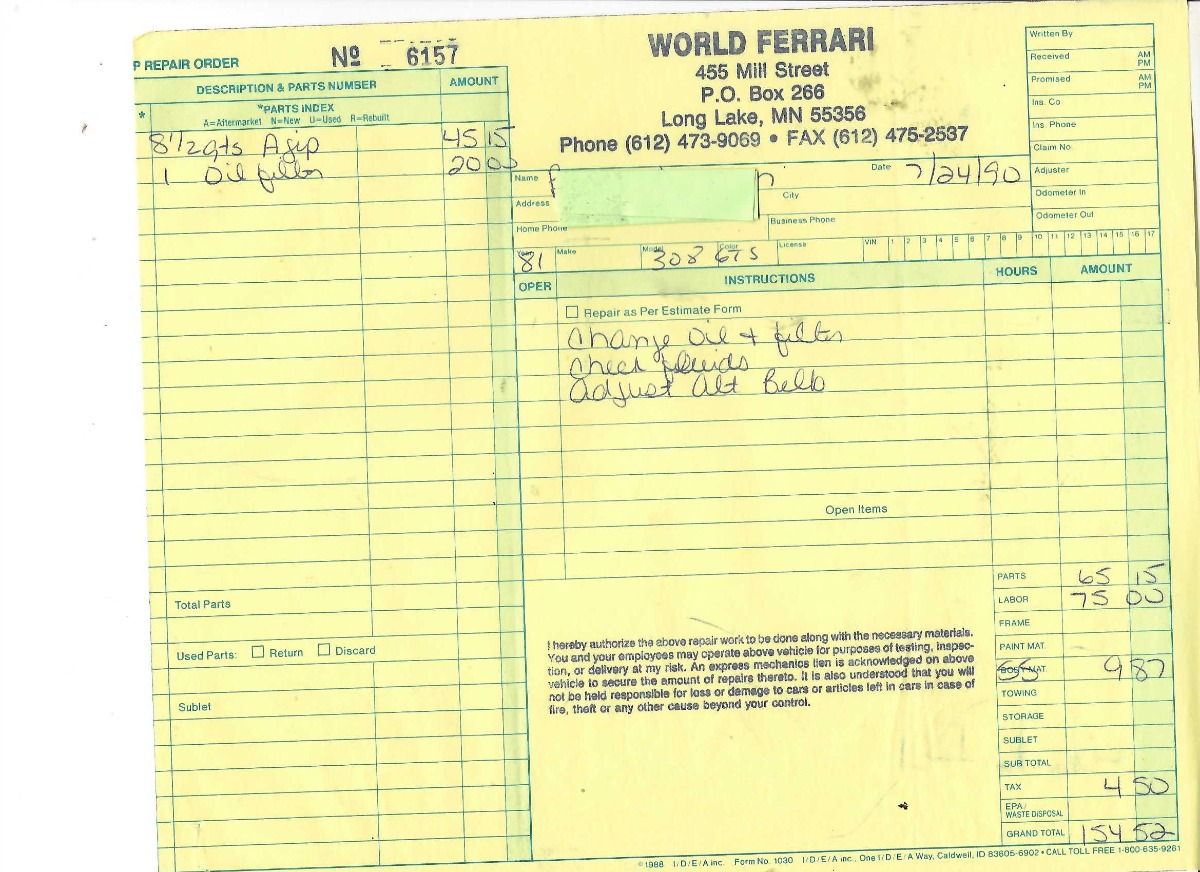 P REPAIR ORDER
Nº 6157
DESCRIPTION & PARTS NUMBER AMOUNT
*
*PARTS INDEX
A=Aftermarket N=New U=Used R=Rebuilt
8 1/2 qts Agip 45 15
1 Oil filter 20 00
Total Parts
Used Parts: Return Discard
Sublet
WORLD FERRARI
455 Mill Street
P.O. Box 266
Long Lake, MN 55356
Phone (612) 473-9069 • FAX (612) 475-2537
Name
Date 7/24/90
Address
City
Home Phone
Business Phone
Year 81 Make Model 308 GTS Color License VIN 1 2 3 4 5 6 7 8 9 10 11 12 13 14 15 16 17
Written By
Received AM PM
Promised AM PM
Ins. Co
Ins. Phone
Claim No.
Adjuster
Odometer In
Odometer Out
OPER INSTRUCTIONS HOURS AMOUNT
Repair as Per Estimate Form
Change Oil + filter
Check fluids
Adjust Alt Belt
Open Items
I hereby authorize the above repair work to be done along with the necessary materials.
You and your employees may operate above vehicle for purposes of testing, inspec-
tion, or delivery at my risk. An express mechanics lien is acknowledged on above
vehicle to secure the amount of repairs thereto. It is also understood that you will
not be held responsible for loss or damage to cars or articles left in cars in case of
fire, theft or any other cause beyond your control.
PARTS 65 15
LABOR 75 00
FRAME
PAINT MAT.
BODY MAT. 9 87
TOWING
STORAGE
SUBLET
SUB TOTAL
TAX 4 50
EPA/
WASTE DISPOSAL
GRAND TOTAL 154 52
©1988 I/D/E/A inc. Form No. 1030 I/D/E/A inc., One I/D/E/A Way, Caldwell, ID 83605-6902 • CALL TOLL FREE 1-800-635-9261